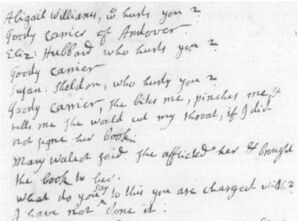 Abigail Williams, wo hurts you?
Goody Carrier of Andover.
Eliz: Hubbard who hurts you?
Goody Carrier
Susan: Sheldon, who hurts you?
Goody Carrier, she bites me, pinches me, &
tells me she would cut my throat, if I did
not signe her book
Mary Walcot said she afflicted her & brought
the book to her.
What do you say to this you are charged with?
I have not done it.